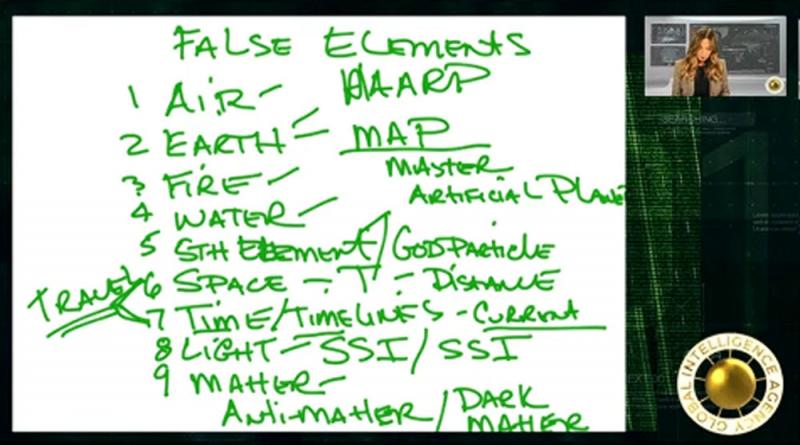 FALSE ELEMENTS
1 AiR - HAARP
2 EARTH = MAP
MASTER
ARTIFICIAL PLANE
3 FIRE -
4 WATER -
5 5TH ELEMENT / GOD PARTICLE
TRAVEL 6 SPACE - T - DISTANCE
7 TIME / TIMELINES - CURRENT
8 LIGHT - SSI / SSI
9 MATTER -
ANTI-MATTER / DARK
MATTER
SEARCHING...
GLOBAL INTELLIGENCE AGENCY